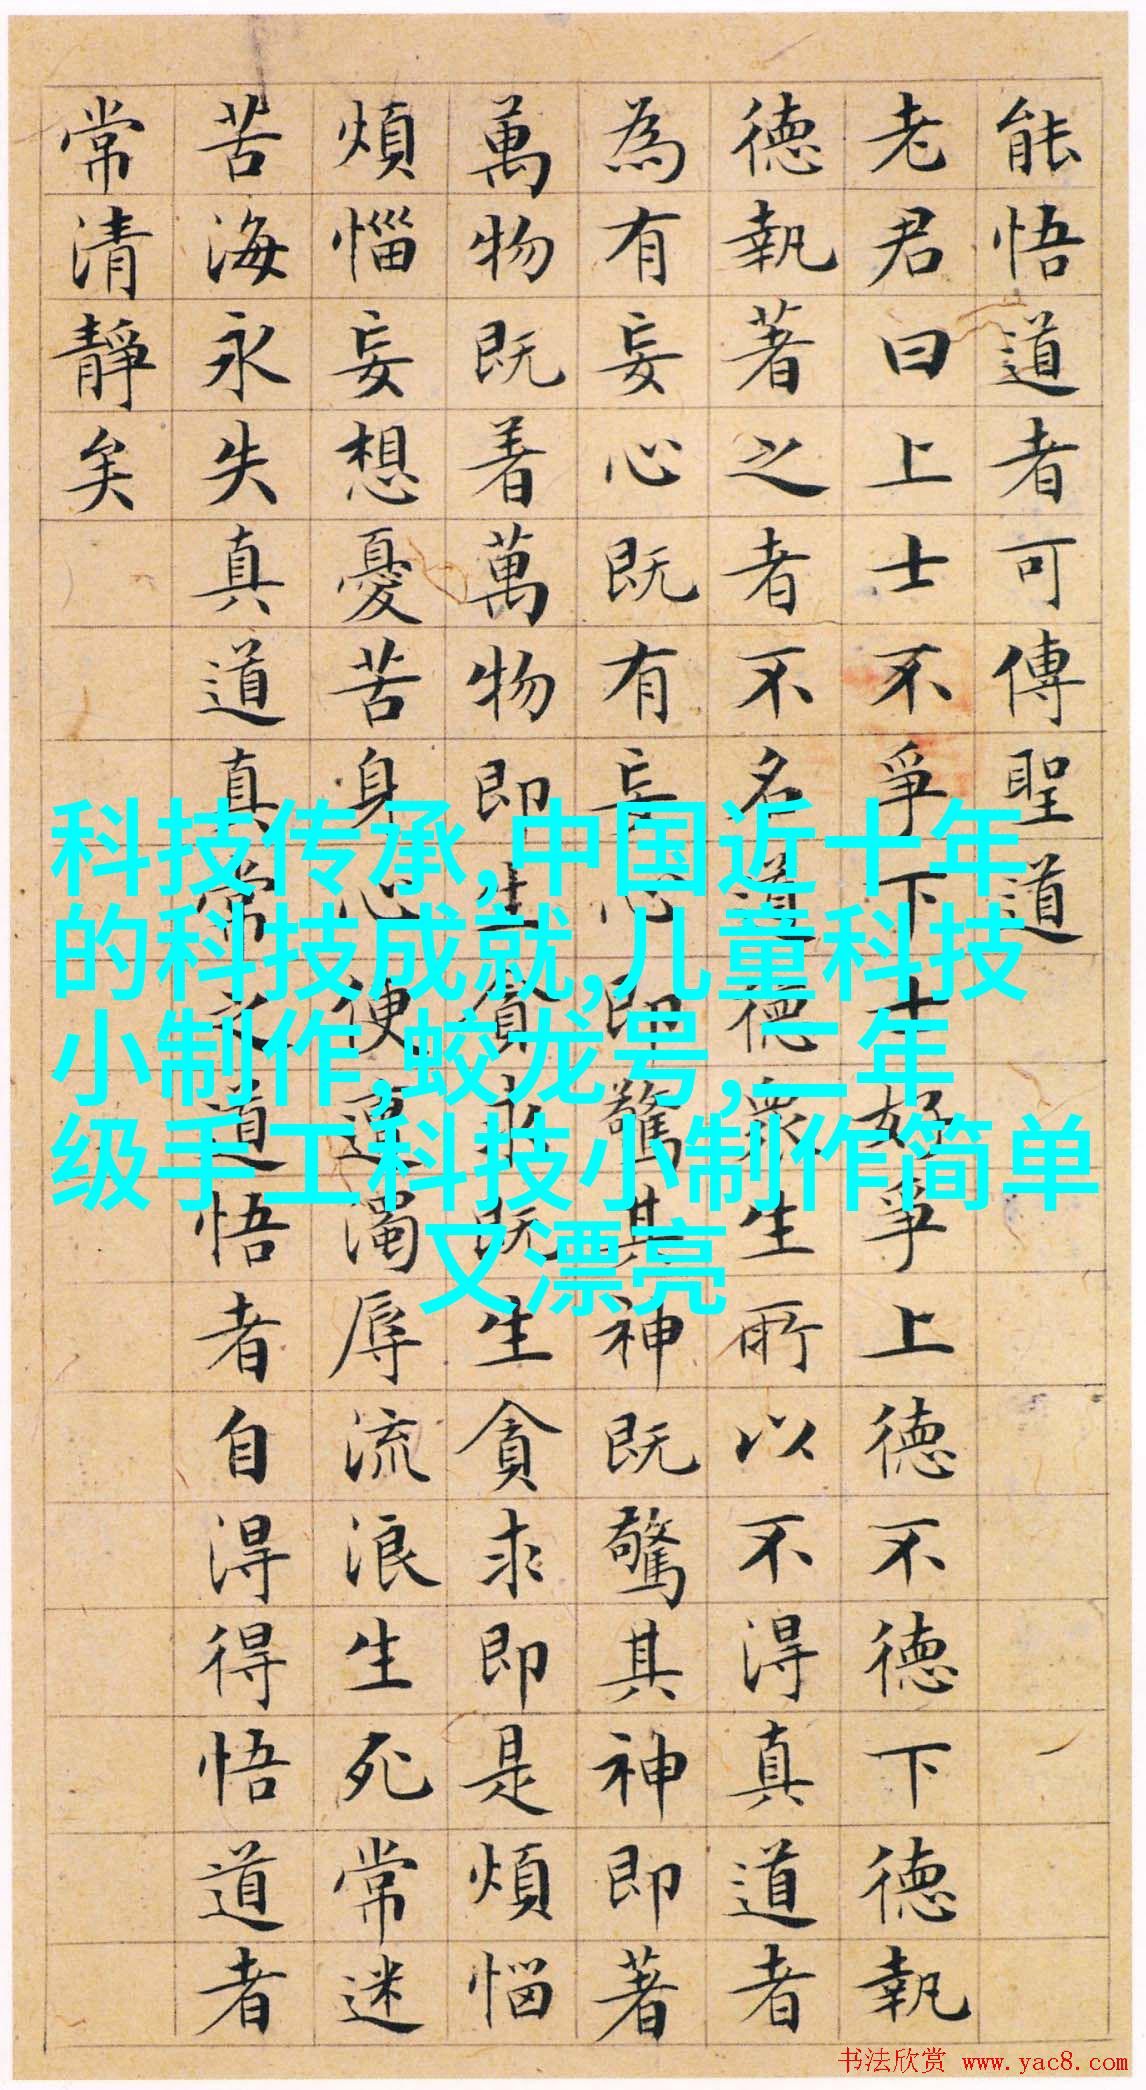 能悟道者可傳聖道
老君曰上士不爭下士好爭上德不德下德執
德執著之者不名道德衆生所以不淂真道者
為有妄心既有妄心即驚其神既驚其神即著
萬物既着萬物即生貪求既生貪求即是煩惱
煩惱妄想憂苦身心便遭濁辱流浪生死常迷
苦海永失真道真常之道悟者自淂得悟道者
常清靜矣
科技传承,中国近十年
的科技成就,儿童科技
小制作,蛟龙号,二年
级手工科技小制作简单
又漂亮
书法欣赏 www.yac8.com